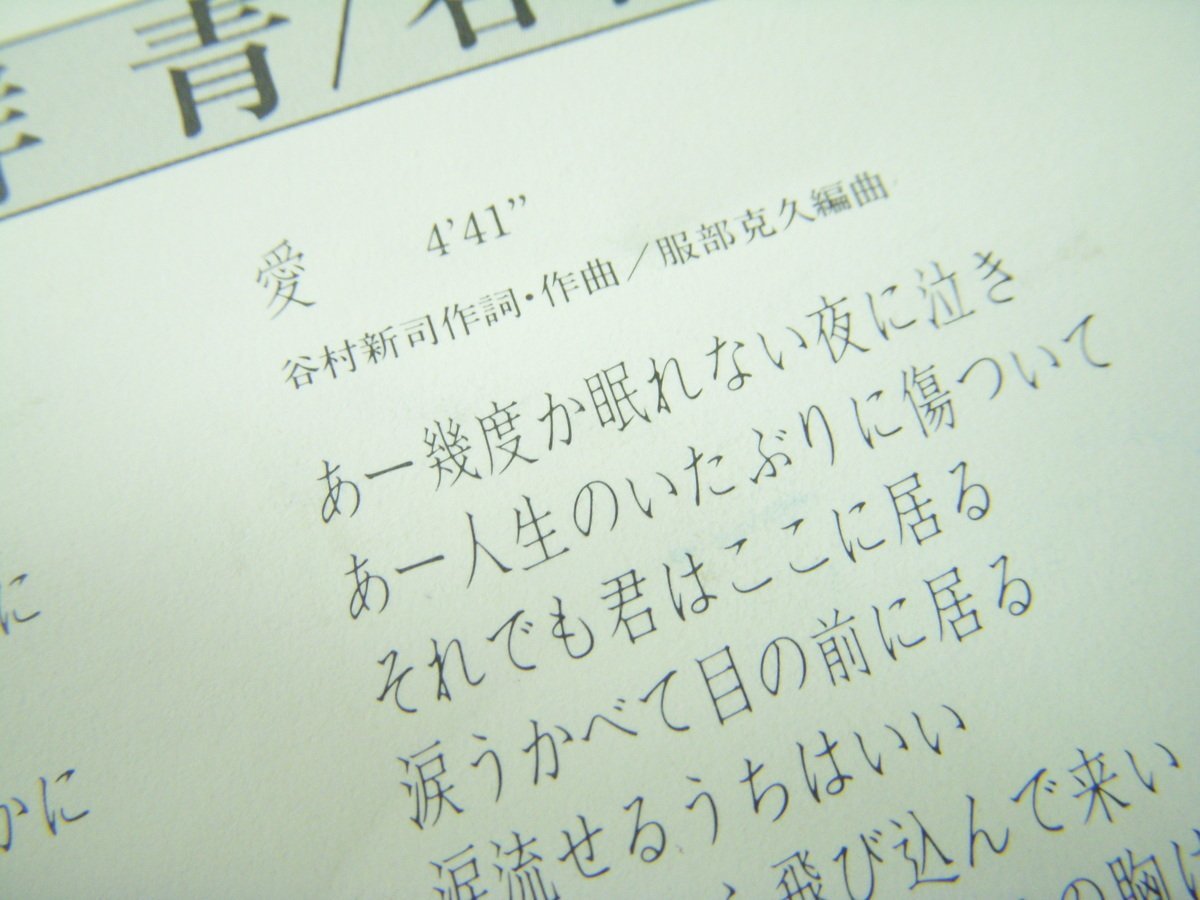 青/
愛 4'41"
谷村新司作詞・作曲/服部克久編曲
あー幾度か眠れない夜に泣き
あー人生のいたぶりに傷ついて
それでも君はここに居る
涙うかべて目の前に居る
涙流せるうちはいい
飛び込んで来い
の胸に
に
かに